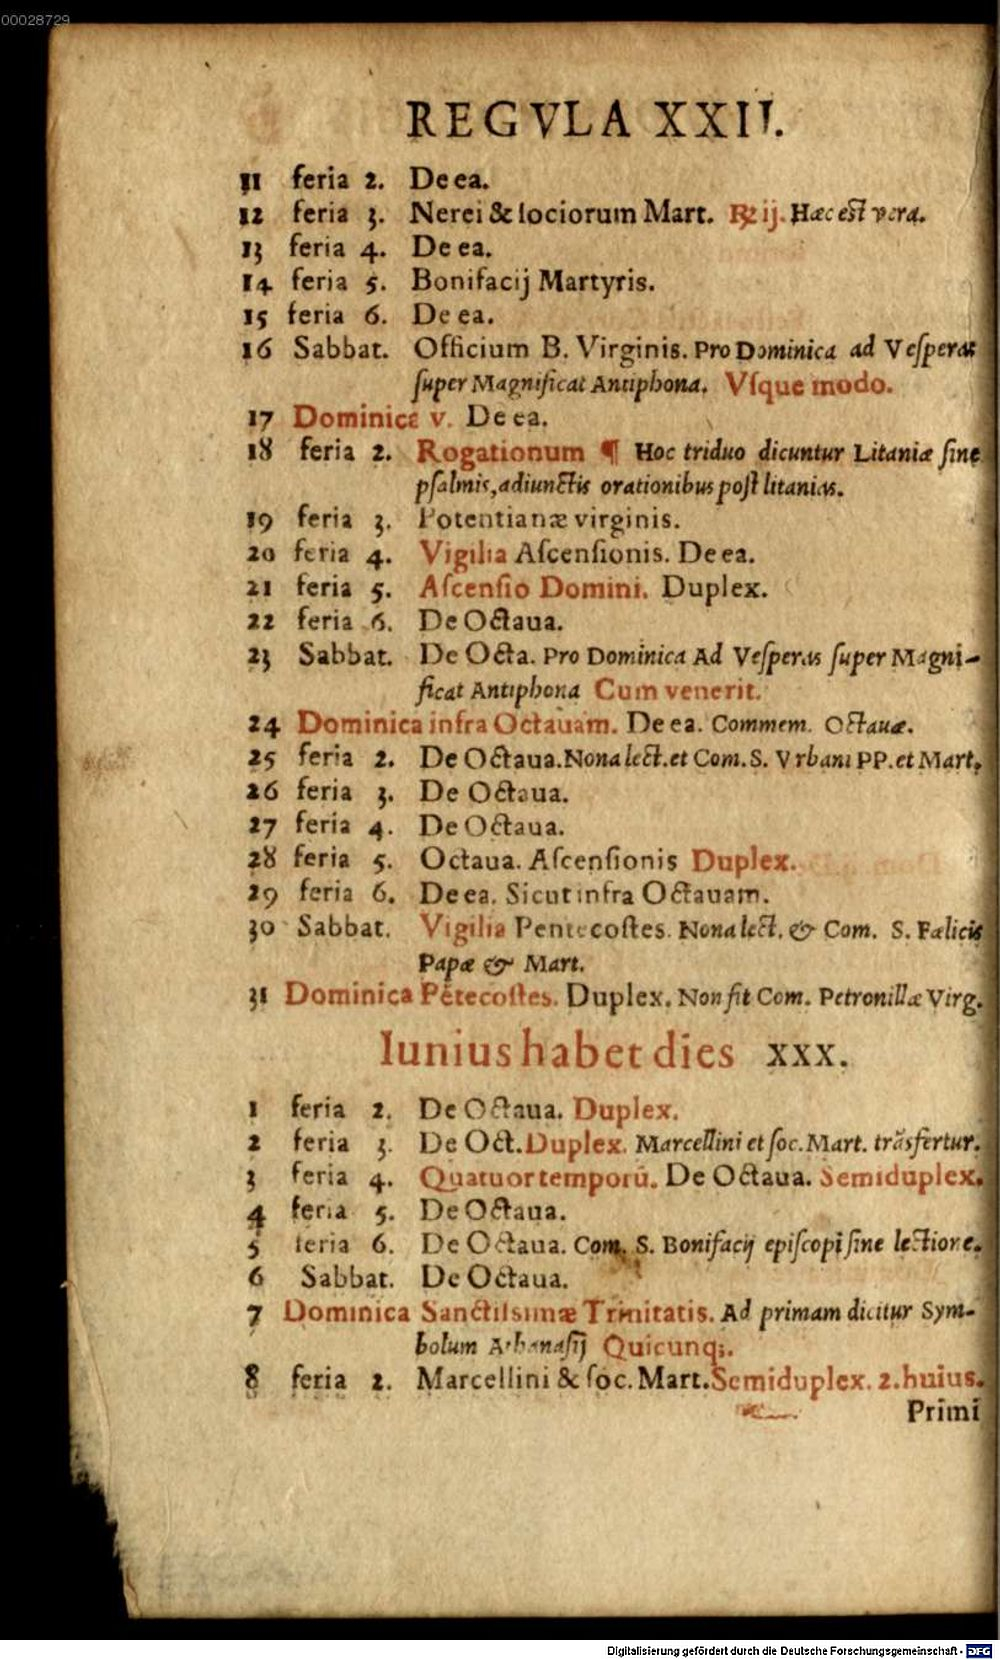 00028729
REGVLA XXII.
11 feria 2. De ea.
12 feria 3. Nerei & ſociorum Mart. ℞ ij. Hæc eſt vera.
13 feria 4. De ea.
14 feria 5. Bonifacij Martyris.
15 feria 6. De ea.
16 Sabbat. Officium B. Virginis. Pro Dominica ad Veſperas
ſuper Magnificat Antiphona. Vſque modo.
17 Dominica v. De ea.
18 feria 2. Rogationum ¶ Hoc triduo dicuntur Litaniæ ſine
pſalmis, adiunctis orationibus poſt litanias.
19 feria 3. Potentianæ virginis.
20 feria 4. Vigilia Aſcenſionis. De ea.
21 feria 5. Aſcenſio Domini. Duplex.
22 feria 6. De Octaua.
23 Sabbat. De Octa. Pro Dominica Ad Veſperas ſuper Magni-
ficat Antiphona Cum venerit.
24 Dominica infra Octauam. De ea. Commem. Octauæ.
25 feria 2. De Octaua. Nona lect. et Com. S. Vrbani PP. et Mart.
26 feria 3. De Octaua.
27 feria 4. De Octaua.
28 feria 5. Octaua. Aſcenſionis Duplex.
29 feria 6. De ea. Sicut infra Octauam.
30 Sabbat. Vigilia Pentecoſtes. Nona lect. & Com. S. Fælicis
Papæ & Mart.
31 Dominica Pētecoſtes. Duplex. Non fit Com. Petronillæ Virg.
Iunius habet dies XXX.
1 feria 2. De Octaua. Duplex.
2 feria 3. De Oct. Duplex. Marcellini et ſoc. Mart. trāſfertur.
3 feria 4. Quatuor temporū. De Octaua. Semiduplex.
4 feria 5. De Octaua.
5 feria 6. De Octaua. Com. S. Bonifacij epiſcopi ſine lectione.
6 Sabbat. De Octaua.
7 Dominica Sanctiſsimæ Trinitatis. Ad primam dicitur Sym-
bolum Athanaſij Quicunq;.
8 feria 2. Marcellini & ſoc. Mart. Semiduplex. 2. huius.
Primi
Digitalisierung gefördert durch die Deutsche Forschungsgemeinschaft - DFG